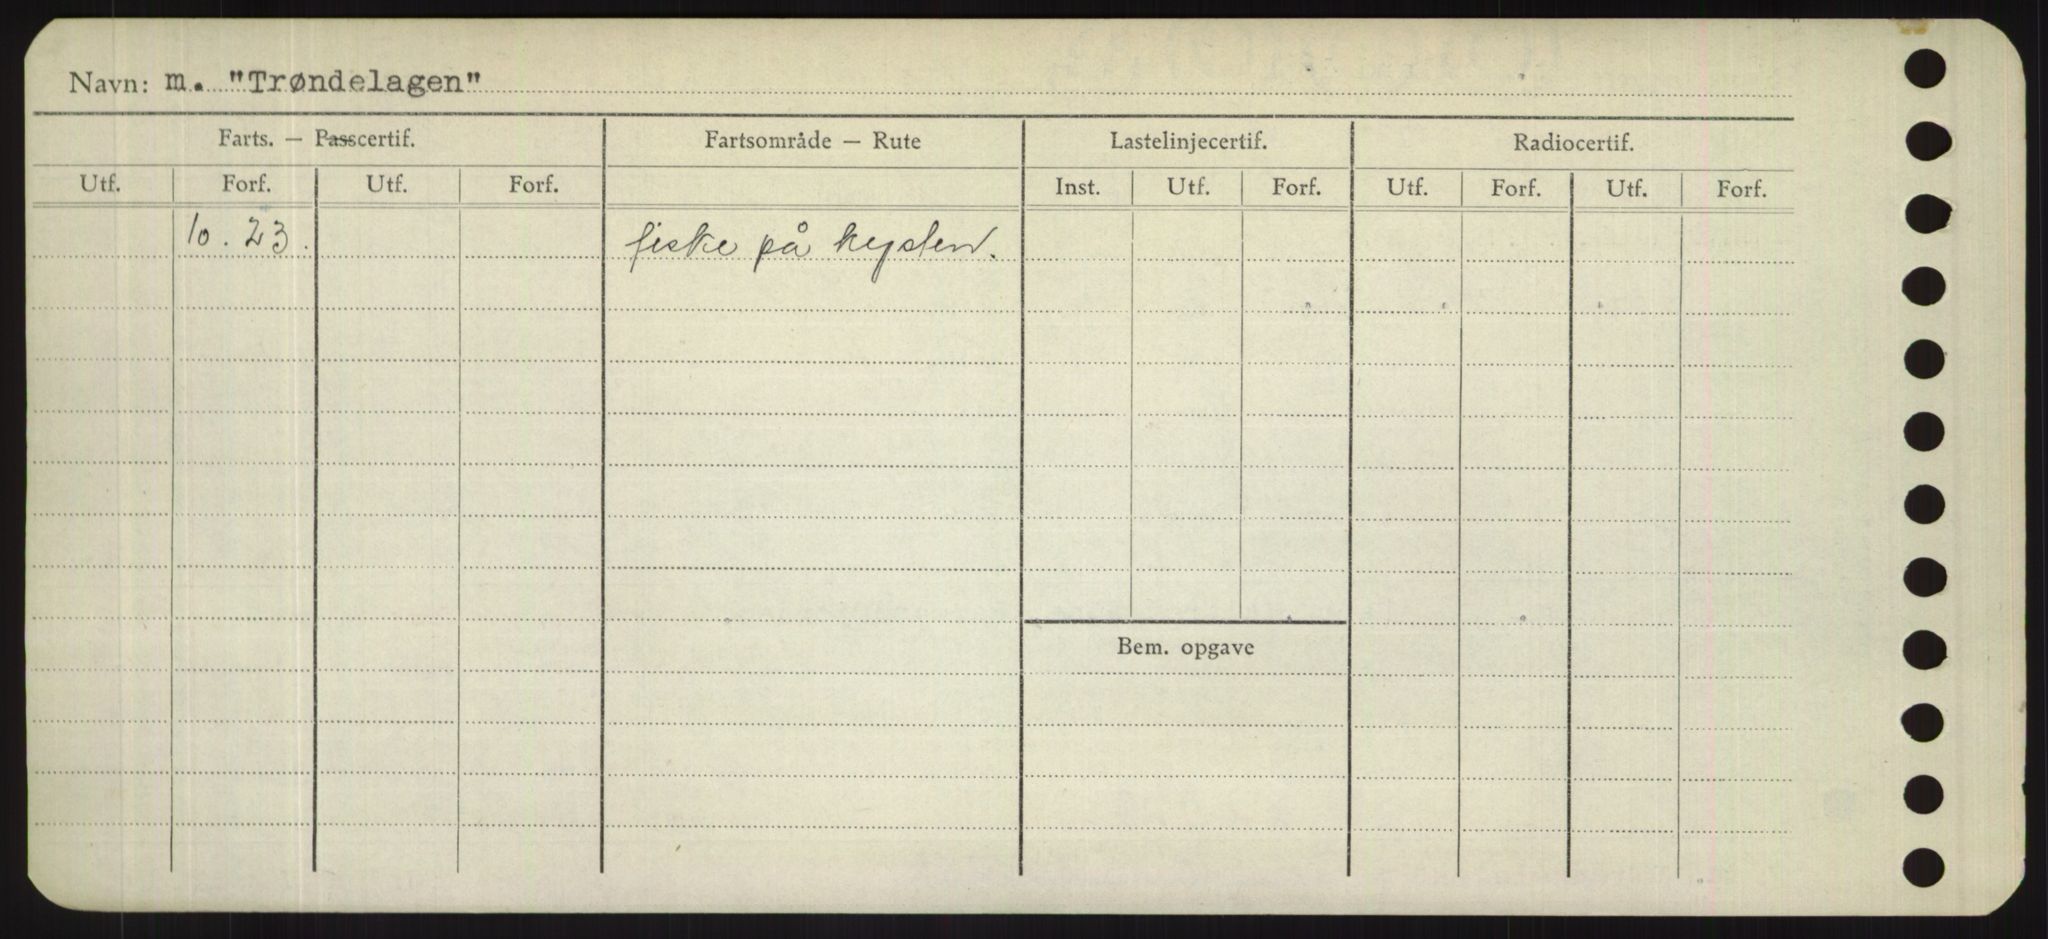 Navn: m. "Trøndelagen"
Farts. — Passcertif. Fartsområde — Rute Lastelinjecertif. Radiocertif.
Utf. Forf. Utf. Forf. Inst. Utf. Forf. Utf. Forf. Utf. Forf.
10. 23. fiske på kysten.
Bem. opgave